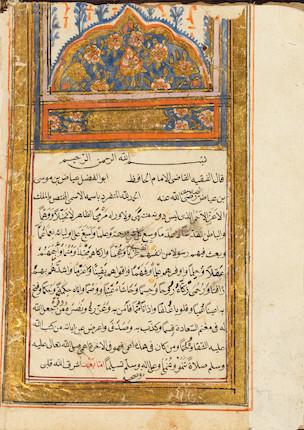 بسم الله الرحمن الرحيم
قال الفقيه القاضي الامام الحافظ ابو الفضل عياض بن موسى
بن عياض اليحصبي رضي الله عنه الحمد لله المتفرد باسمه الاسمى المختص بالملك
الاعز الاحمى الذي ليس دونه منتهى ولا وراءه مرمى الظاهر لا تخيلا ووهما
والباطن تقدسا لا عدما وسع كل شيء رحمة وعلما واسبغ على اوليائه نعما عما
وبعث فيهم رسولا من انفسهم عربا وعجما وازكاهم محتدا ومنمى وارجحهم
عقلا وحلما واوفرهم علما وفهما واقواهم يقينا وعزما واشدهم بهم
رافة ورحمى زكاه روحا وجسما وحاشاه عيبا ووصما واتاه حكمة وحكما وفتح
به اعينا عميا وقلوبا غلفا واذانا صما فامن به وعزره ونصره من جعل الله
له في مغنم السعادة قسما وكذب به وصدف عن اياته من كتب الله
عليه الشقاء حتما ومن كان في هذه اعمى فهو في الاخرة اعمى صلى الله تعالى عليه
وسلم صلاة تنمو وتنمى وعلى اله وسلم تسليما اما بعد اشرق الله قلبي